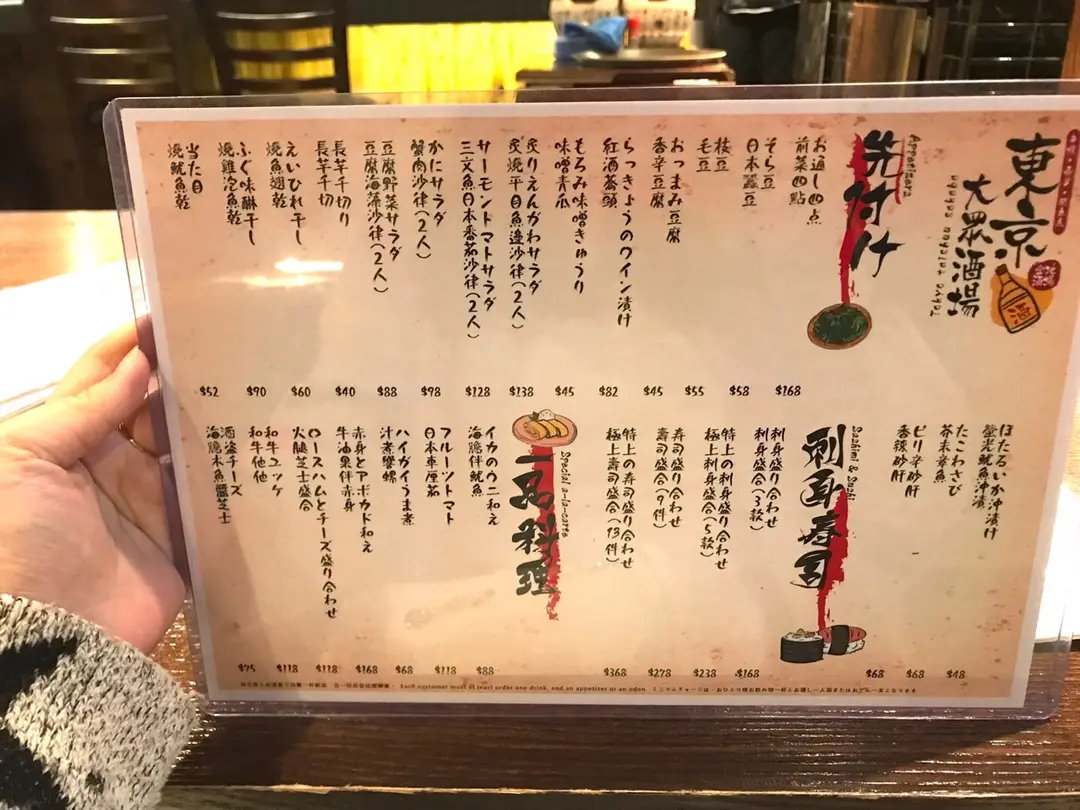 東京
大眾酒場
Tokyo taishu sakaba
先付け
Appetizers
お通し四点
前菜四點
$168
そら豆
日本蠶豆
$58
枝豆
毛豆
$55
おつまみ豆腐
香辛豆腐
$45
らっきょうのワイン漬け
紅酒蕎頭
$82
もろみ味噌きゅうり
味噌青瓜
$45
炙りえんがわサラダ
炙燒平目魚邊沙律(2人)
$138
サーモントマトサラダ
三文魚日本番茄沙律(2人)
$128
かにサラダ
蟹肉沙律(2人)
$98
豆腐野菜サラダ
豆腐海藻沙律(2人)
$88
長芋千切り
長芋千切
$40
えいひれ干し
燒魚翅乾
$60
ふぐ味醂干し
燒雞泡魚乾
$90
当た目
燒魷魚乾
$52
ほたるいか沖漬け
螢光魷魚沖漬
$48
たこわさび
芥末章魚
$68
ピリ辛砂肝
香辣砂肝
$68
刺身寿司
Sashimi & Sushi
刺身盛り合わせ
刺身盛合(3款)
$168
特上の刺身盛り合わせ
極上刺身盛合(5款)
$238
寿司盛り合わせ
壽司盛合(9件)
$278
特上の寿司盛り合わせ
極上壽司盛合(13件)
$368
一品料理
Special a-la-carte
イカのウニ和え
海膽伴魷魚
$88
フルーツトマト
日本車厘茄
$118
ハイガイうま煮
汁煮螺
$68
赤身とアボカド和え
牛油果伴赤身
$168
ロースハムとチーズ盛り合わせ
火腿芝士盛合
$118
和牛ユッケ
和牛他他
$118
酒盗チーズ
$75
Each customer must at least order one drink, and an appetizer or an oden.